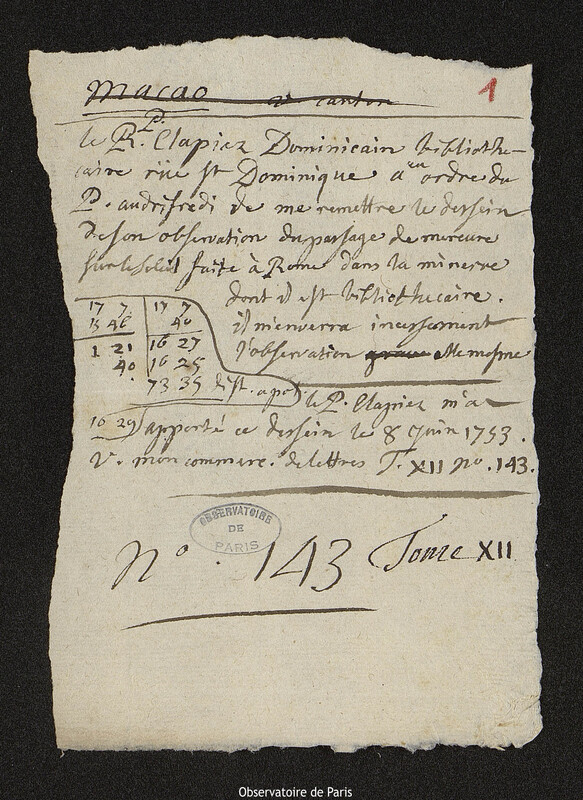 Macao et canton
1
le R. P. Clapiez Dominicain bibliothe-
caire rüe St Dominique a eu ordre du
P. audifredi de me remettre le dessein
de son observation du passage de mercure
sur le soleil faite à Rome dans la minerve
dont il est bibliothecaire.
il m'enverra incessement
l'observation elle mesme
17 7 17 7
15 46 40
1 21 16 27
40 16 25
73 35 dist. a po
le P. Clapiez m'a
16 29
apporté ce dessein le 8 Juin 1753.
V. mon commerc. de lettres T. XII No. 143.
OBSERVATOIRE
DE
PARIS
No. 143 Tome XII
Observatoire de Paris